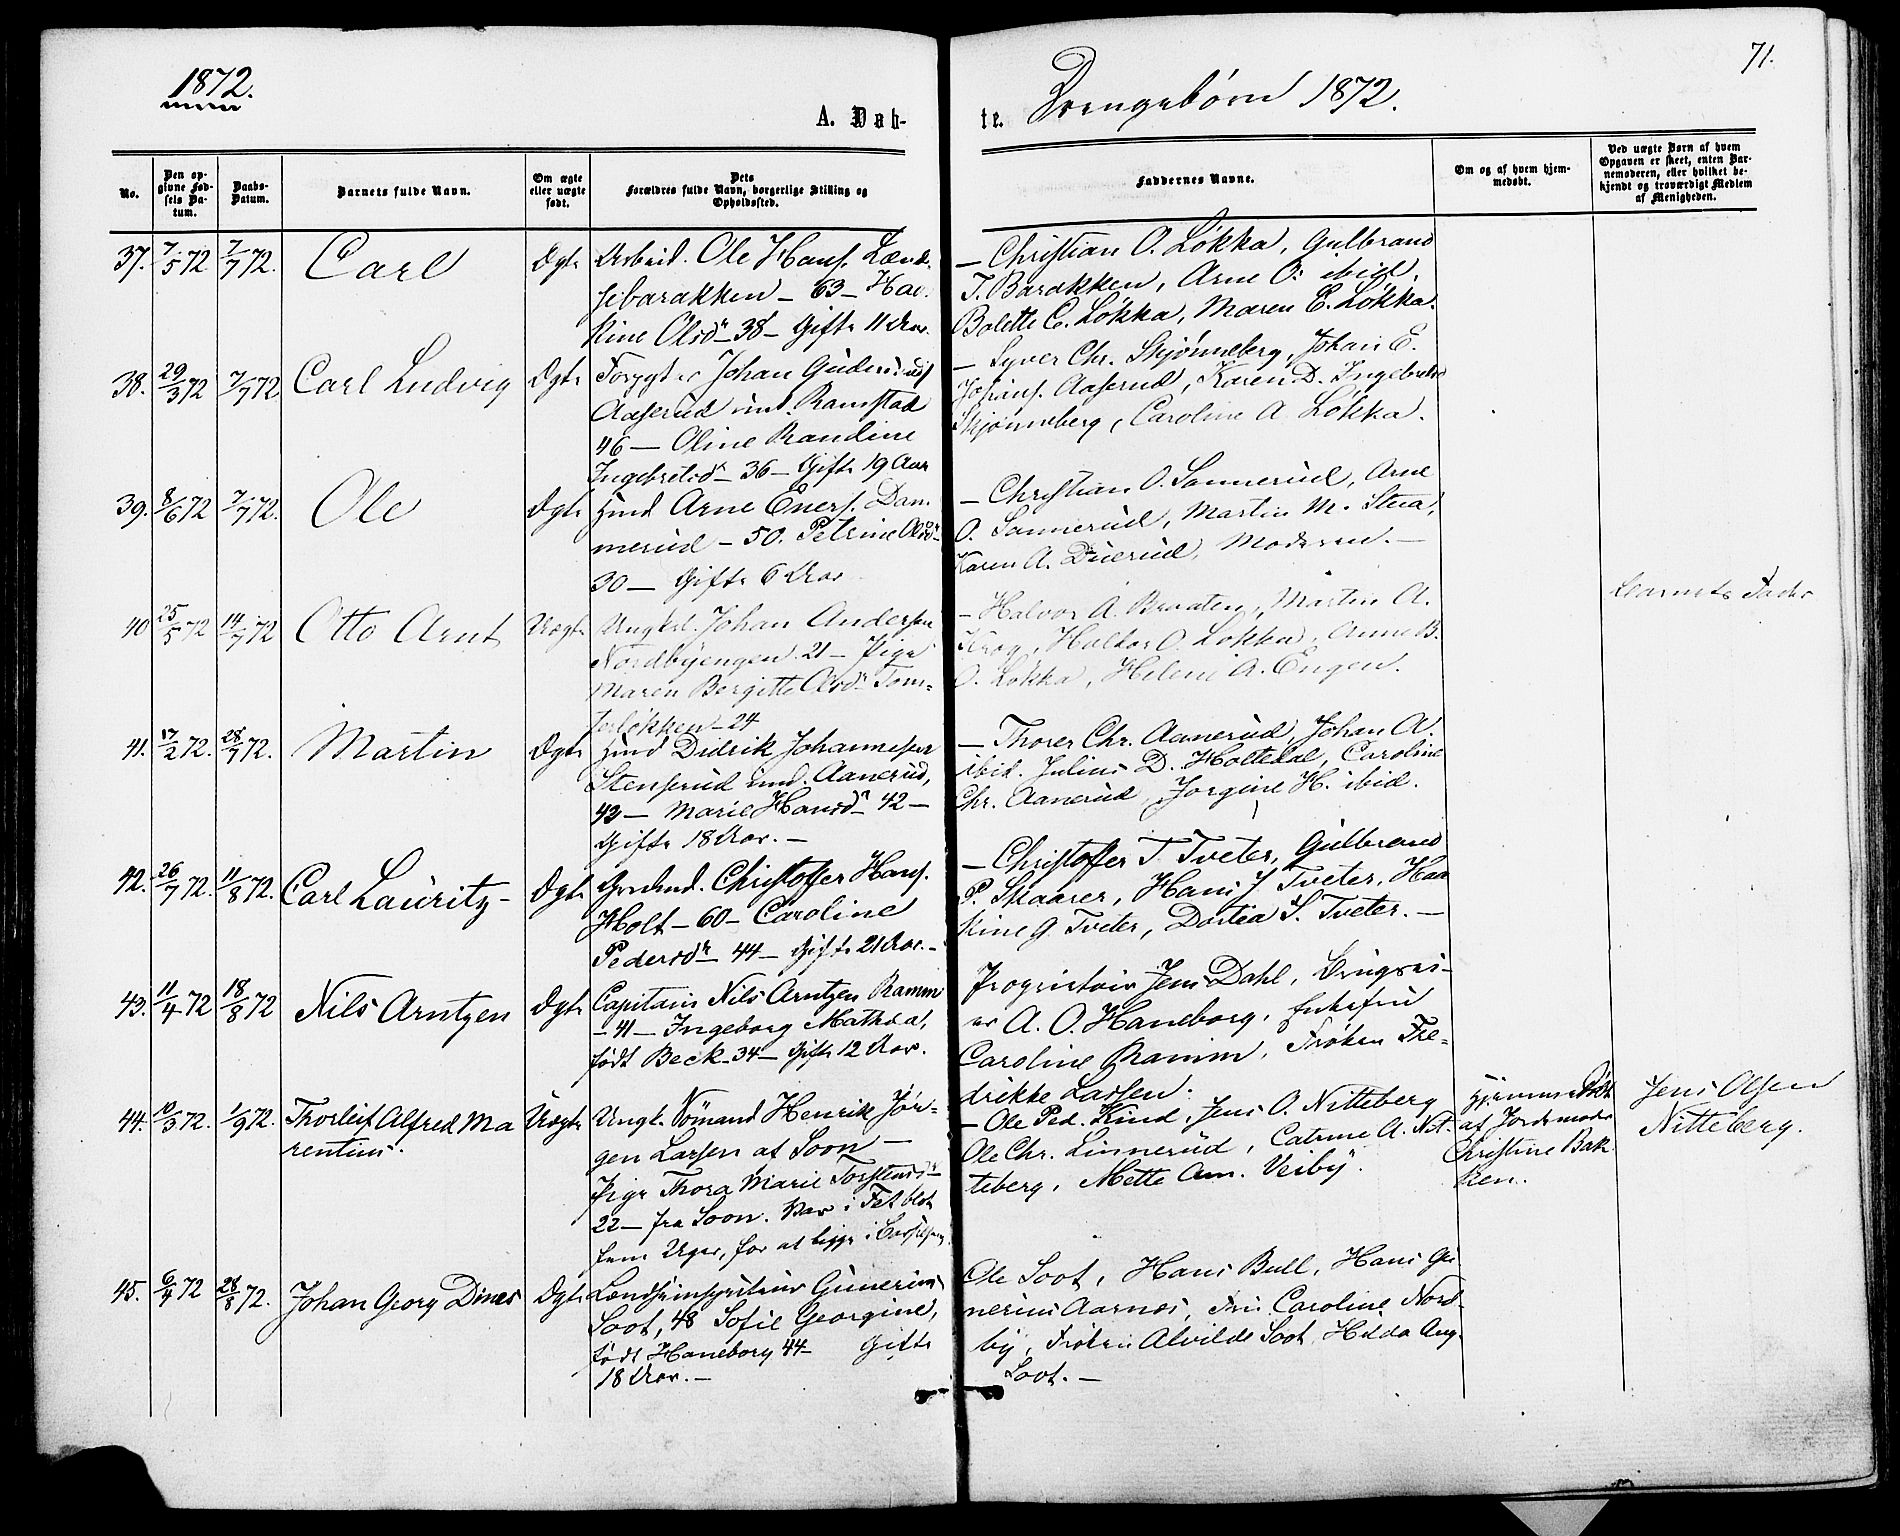 1872.
71.
A. Døb-
te.
Drengebørn 1872.
No.
Den op-
givne Fød-
sels Da-
tum.
Daabs-
Datum.
Barnets fulde Navn.
Om ægte
eller uægte
født.
Dets
Forældres fulde Navn, borgerlige Stilling og
Opholdssted.
Faddernes Navne.
Om og af hvem hjem-
medøbt.
Ved uægte Børn af hvem
Opgaven er skeet, enten Bar-
nemoderen, eller hvilket be-
kjendt og troværdigt Medlem
af Menigheden.
37. 7/5 72 7/7 72. Carl Ægte Arbeid. Ole Hans.
barakken – 63 –
kine Olsdr – 38 – Gifte 11 Aar.
– Christian O. Løkka, Gulbrand
T. Barakken, Arne O. ibid.
Bolette C. Løkka, Maren E. Løkka.
38. 29/3 72 7/7 72 Carl Ludvig Ægte Johan
Aaserud und. Ramstad
46 – Oline Randine
Ingebretsdr – 36 – Gifte 19 Aar
– Syver Chr. Skjønneberg, Johan E.
Johans. Aaserud, Karen D.
Skjønneberg, Caroline A. Løkka.
39. 8/6 72 7/7 72. Ole Ægte Hmd Arne Eners. Dam
merud – 50. Petrine Olsdr –
30 – Gifte 6 Aar
– Christian O. Sannerud, Arne
O. Sannerud, Martin M. Stua,
Karen A. Duerud, Moderen. –
40 25/5 72 14/7 72 Otto Arnt Uægte Ungkl. Johan Andersen
Nordbyengen 21 – Pige
Maren Bergitte Olsdr Tom=
terløkken – 24
– Halvor A. Braaten, Martin A.
Krog, O. Løkka, Anne B.
O. Løkka, Helene A. Engen.
Barnets Fader
41. 17/2 72. 28/7 72. Martin Ægte Hmd Didrik Johannesen
Stenserud und. Aanerud,
42 – Marie Hansdr – 42 –
Gifte 18 Aar. –
– Thorer Chr. Aanerud, Johan A.
ibid. Julius D. Holtedal, Caroline
Chr. Aanerud, Jorgine H. ibid.
42. 26/7 72. 11/8 72. Carl Lauritz – Ægte Grdmd. Christoffer Hans.
Holt – 60 – Caroline
Pedersdr – 44 – Gifte 21 Aar. –
– Christoffer T. Tveter, Gulbrand
P. Skaarer, Hans J. Tveter, Haa
kine G. Tveter, Dortea S. Tveter. –
43. 11/4 72 18/8 72 Nils Arntzen Ægte Capitain Nils Arntzen Ramm
– 41 – Ingeborg
født Beck – 34 – Gifte 12 Aar.
Proprietair Jens Dahl, Brugsei-
er A. O. Haneborg, Enkefru
Caroline Ramm, Frøken Fre=
drikke Lassen.
44. 10/3 72. 1/9 72. Thorleif Alfred Ma
rentius. Uægte Ungk. Sømand Henrik Jør=
gen Larsen af Soon –
Pige Thora Marie Torstensdr
22 – fra Soon. Var i Fet blot
fem Uger, for at ligge i Barselseng.
– Ole Ped. Kind, Jens O. Nitteberg
Ole Chr. Linnerud, Catrine A. Nit-
teberg, Mette Am. Veiby.
Hjemmedøbt
af Jordemoder
Christine Bak
ken.
Jens Olsen
Nitteberg.
45. 6/4 72 28/8 72. Johan Georg Dines Ægte Landhinspecteur Gunerius
Soot, 48 Sofie Georgine,
født Haneborg 44 – Gifte
18 Aar. –
Ole Soot, Hans Bull, Hans Gu
nerius Aarnes, Fru Caroline Nord-
by, Frøken Alvilde Soot, Hilda Aug.
Soot. –